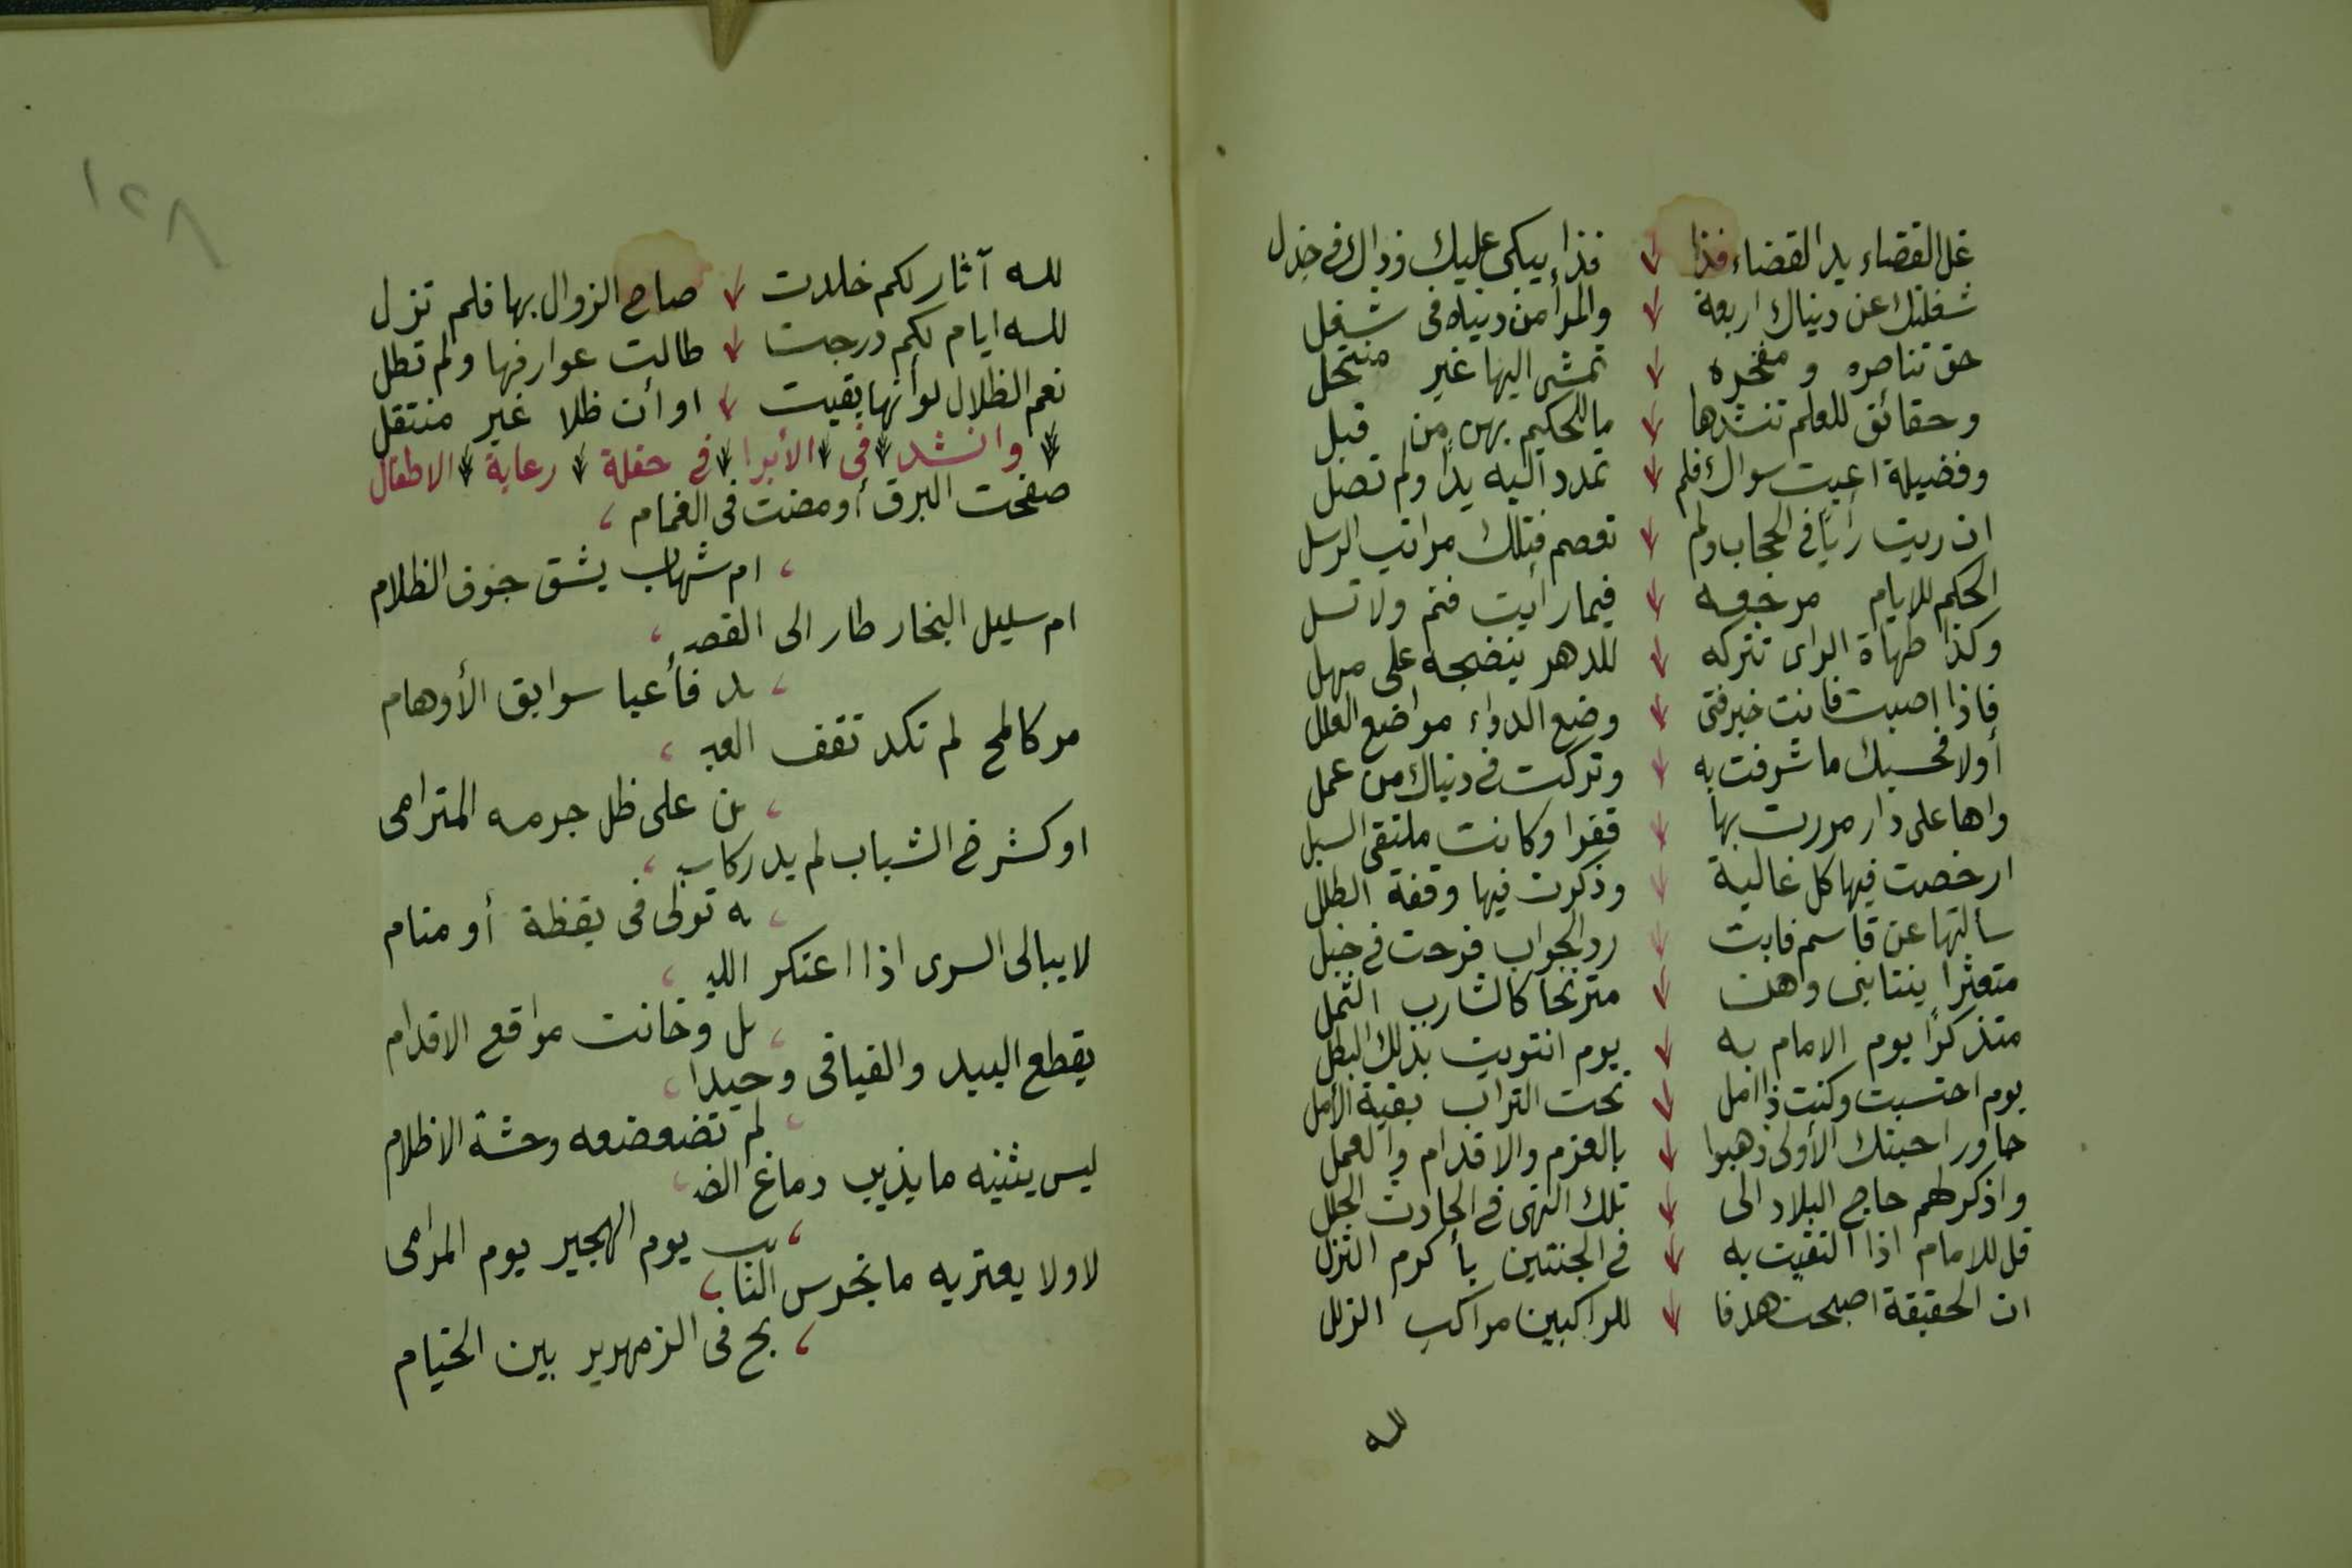 غل القضاء يد القضاء فذا ↓ فذا يبكى عليك وذاك فى جذل
شغلتك عن دنياك اربعة ↓ والمرأ من دنياه فى شغل
حق تناصره ومفخرة ↓ تمشى اليها غير منتحل
وحقائق للعلم تنشدها ↓ ما للحكيم بهن من قبل
وفضيلة اعيت سواك فلم ↓ تمدد اليه يدًا ولم تصل
ان ريت رأيًا فى الحجاب ولم ↓ تعصم فتلك مراتب الرسل
الحكم للايام مرجعه ↓ فيما رأيت فنم ولا تسل
وكذا طهاة الراى تتركه ↓ للدهر ينضجه على مهل
فاذا اصبت فانت خير فتى ↓ وضع الدواء مواضع العلل
أولا فحسبك ما شرفت به ↓ وتركت فى دنياك من عمل
واها على دار مررت بها ↓ قفرا وكانت ملتقى السبل
ارخصت فيها كل غالية ↓ وذكرت فيها وقفة الطلل
سألتها عن قاسم فابت ↓ رد الجواب فرحت فى خبل
متعثرا ينتابنى وهن ↓ مترنحا كالشارب الثمل
متذكرًا يوم الامام به ↓ يوم انتويت بذلك البطل
يوم احتسبت وكنت ذا امل ↓ تحت التراب بقية الأمل
جاور احبتك الأولى ذهبوا ↓ بالعزم والاقدام والعمل
واذكر لهم حاج البلاد الى ↓ تلك النهى فى الحادث الجلل
قل للامام اذا التقيت به ↓ فى الجنتين بأكرم النزل
ان الحقيقة اصبحت هدفا ↓ للراكبين مراكب الزلل
لله
١٢٨
لله آثار لكم خلدت ↓ صاح الزوال بها فلم تزل
لله ايام لكم درجت ↓ طالت عوارفها ولم تطل
نعم الظلال لو أنها بقيت ↓ او أن ظلا غير منتقل
وانشد فى الأبرا فى حفلة رعاية الاطفال
صفحت البرق أومضت فى الغمام ،
، ام شهاب يشق جوف الظلام
ام سليل البخار طار الى القصـ ،
، ـد فأعيا سوابق الأوهام
مر كاللمح لم تكد تقف العيـ ،
، ـن على ظل جرمه المترامى
او كشرخ الشباب لم يدر كاسيـ ،
، ـه تولى فى يقظة أو منام
لا يبالى السرى اذا اعتكر الليـ ،
، ـل وخانت مواقع الاقدام
يقطع البيد والفيافى وحيدا ،
، لم تضعضعه وحشة الاظلام
ليس يثنيه ما يذيب دماغ الضـ ،
، ـب يوم الهجير يوم المرامى
لا ولا يعتريه ما يخرس النا ،
، بح فى الزمهرير بين الخيام